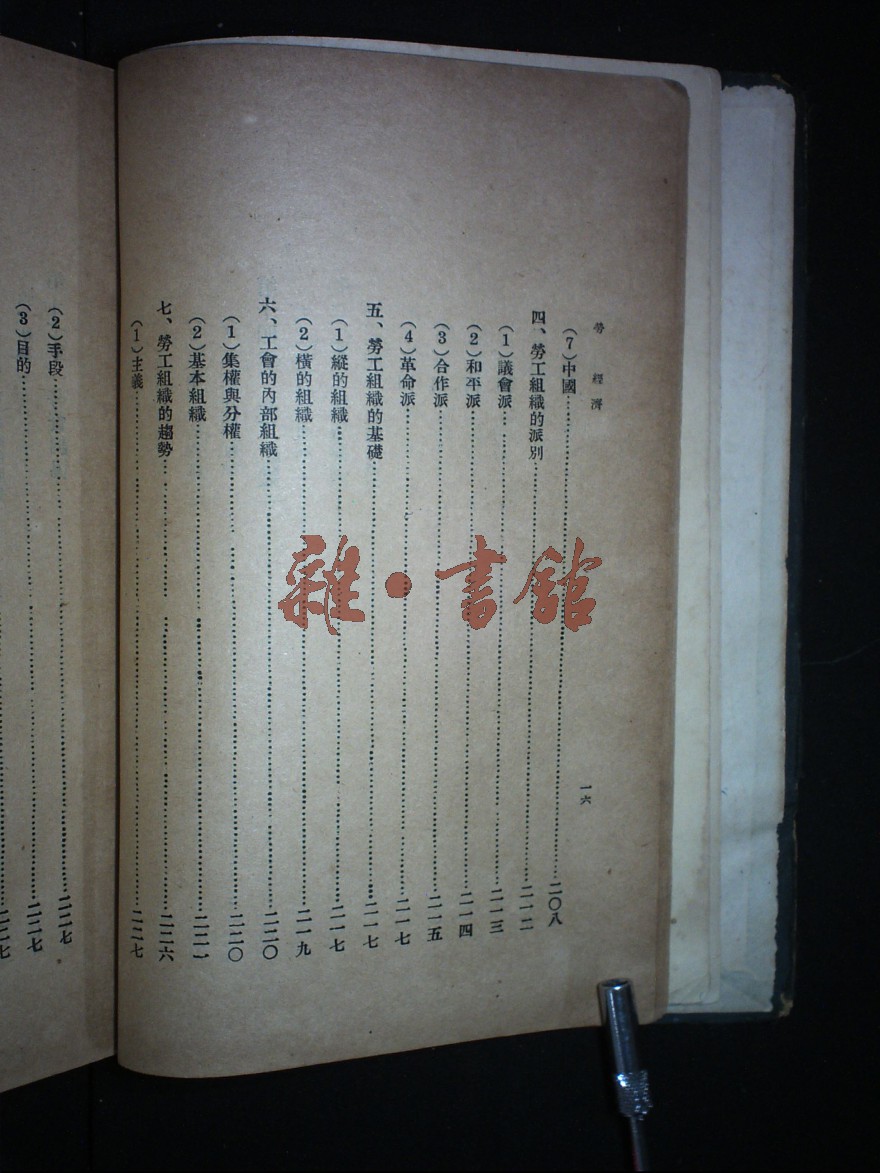 勞 經濟
一六
（7）中國……二〇八
四、勞工組織的派別……二一二
（1）議會派……二一三
（2）和平派……二一四
（3）合作派……二一五
（4）革命派……二一七
五、勞工組織的基礎……二一七
（1）縱的組織……二一七
（2）橫的組織……二一九
六、工會的內部組織……二二〇
（1）集權與分權……二二〇
（2）基本組織……二二一
七、勞工組織的趨勢……二二六
（1）主義……二二七
（2）手段……二二七
（3）目的……二二七
雜·書館